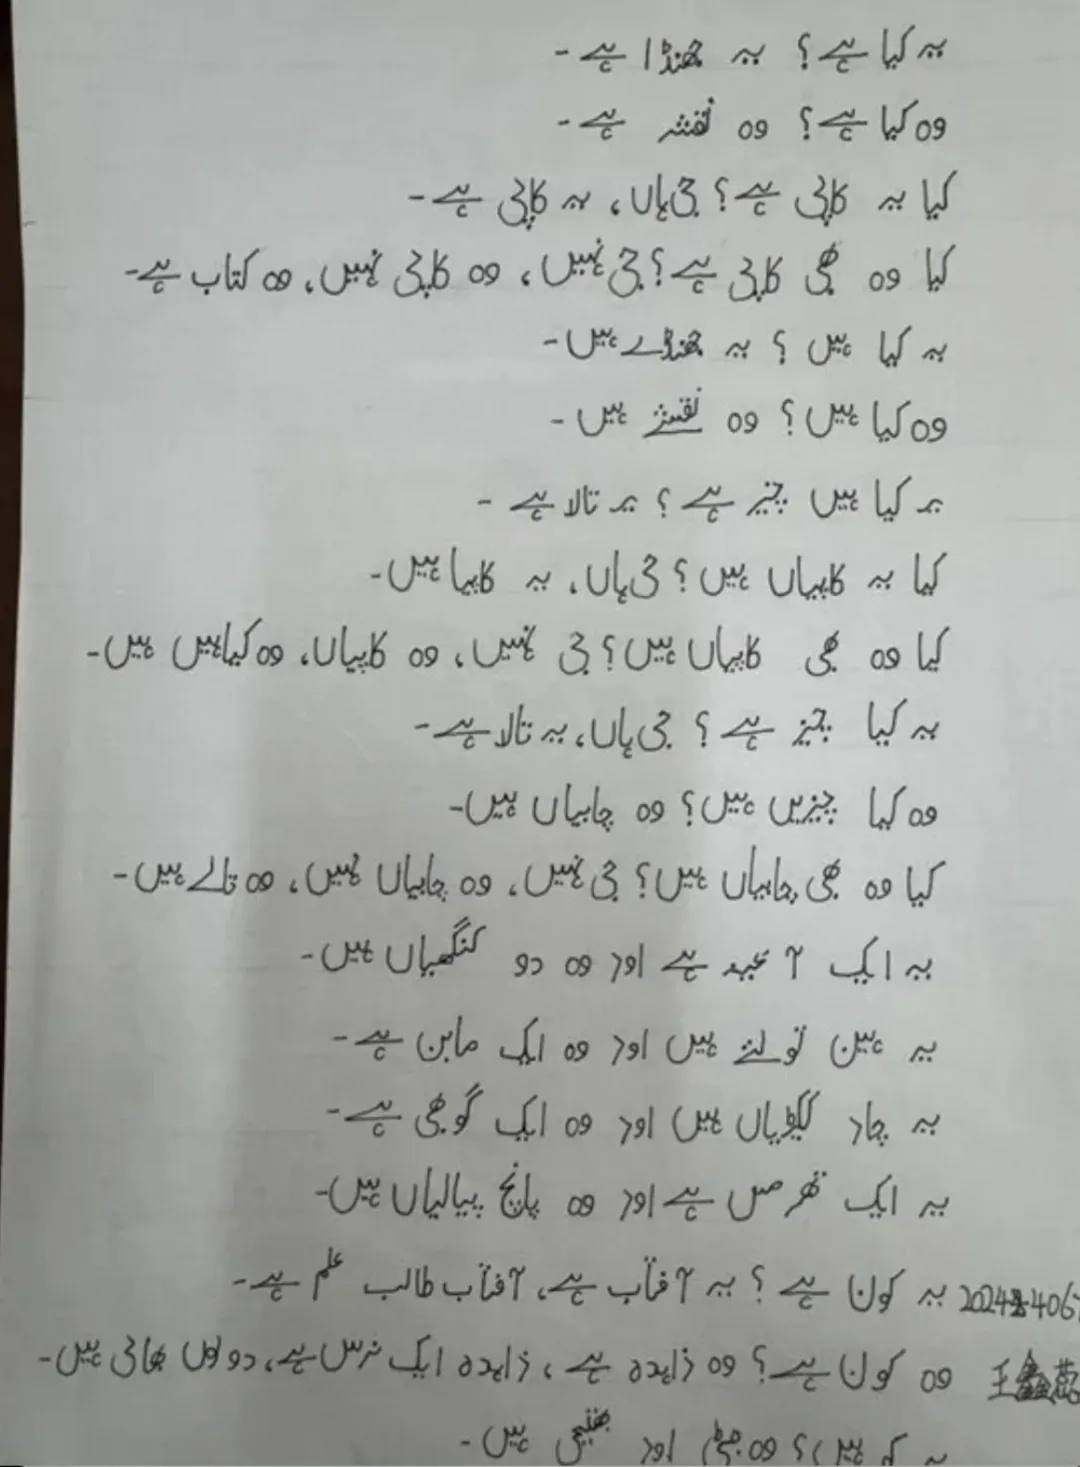 یہ کیا ہے؟ یہ جھنڈا ہے۔
وہ کیا ہے؟ وہ نقشہ ہے۔
کیا یہ کاپی ہے؟ جی ہاں، یہ کاپی ہے۔
کیا وہ بھی کاپی ہے؟ جی نہیں، وہ کاپی نہیں، وہ کتاب ہے۔
یہ کیا ہیں؟ یہ جھنڈے ہیں۔
وہ کیا ہیں؟ وہ نقشے ہیں۔
یہ کیا ہیں چیز ہے؟ یہ تالا ہے۔
کیا یہ کاپیاں ہیں؟ جی ہاں، یہ کاپیا ہیں۔
کیا وہ بھی کاپیاں ہیں؟ جی نہیں، وہ کاپیاں، وہ ہیں۔
یہ کیا چیز ہے؟ جی ہاں، یہ تالا ہے۔
وہ کیا چیزیں ہیں؟ وہ چابیاں ہیں۔
کیا وہ بھی چابیاں ہیں؟ جی نہیں، وہ چابیاں نہیں، وہ تالے ہیں۔
یہ ایک ہے اور وہ دو کنگھیاں ہیں۔
یہ ہیں اور وہ ایک ہے۔
یہ چار ہیں اور وہ ایک گوبھی ہے۔
یہ ایک ہے اور وہ پانچ پیالیاں ہیں۔
یہ کون ہے؟ یہ آفتاب ہے، آفتاب طالب علم ہے۔
وہ کون ہے؟ وہ زاہدہ ہے، زاہدہ ایک نرس ہے، دونوں بھائی ہیں۔
ہیں؟ وہ اور ہیں۔
王鑫